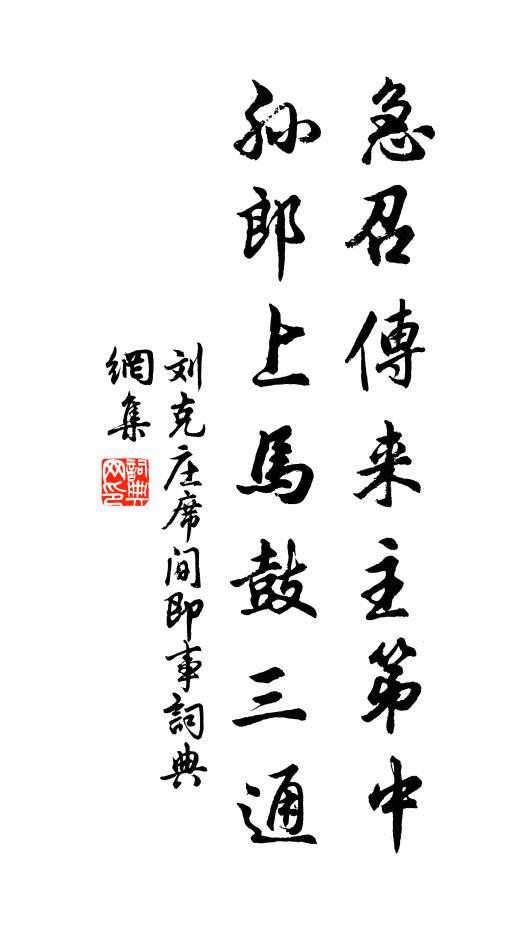 急召傳来主第中
孙郎上馬鼓三通
刘克庄席间即事詞典
網集
詞典網印